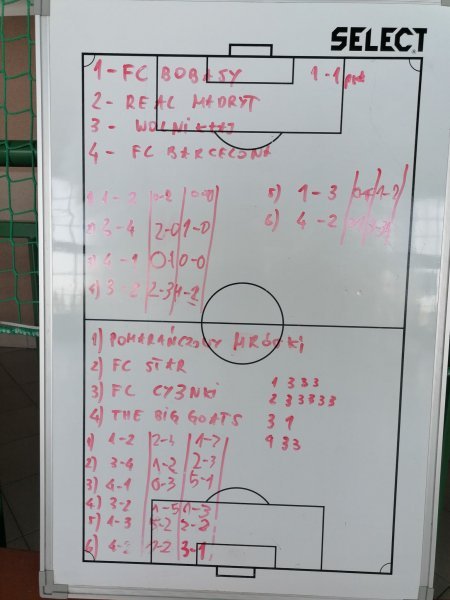 SELECT
1 - FC BOBASY 1 - 1 pkt
2 - REAL MADRYT
3 - WOLNI
4 - FC BARCELONA
1) 1 - 2 0-2 0-0
5) 1 - 3 1-2
2) 3 - 4 2-0 1-0
6) 4 - 2
3) 4 - 1 0-0
4) 3 - 2 2-3 1-2
1) POMARAŃCZOWE MRÓWKI
2) FC STAR
3) FC CYZNKI 1 3 3 3
2 3 3 3 3 3
4) THE BIG GOATS 3 1
4 3 3
1) 1-2 2-3 1-2
2) 3-4 1-2 2-3
3) 4-1 0-3 5-1
4) 3-2 1-5 1-3
5) 1-3 5-2 2-2
6) 4-2 1-2 3-1